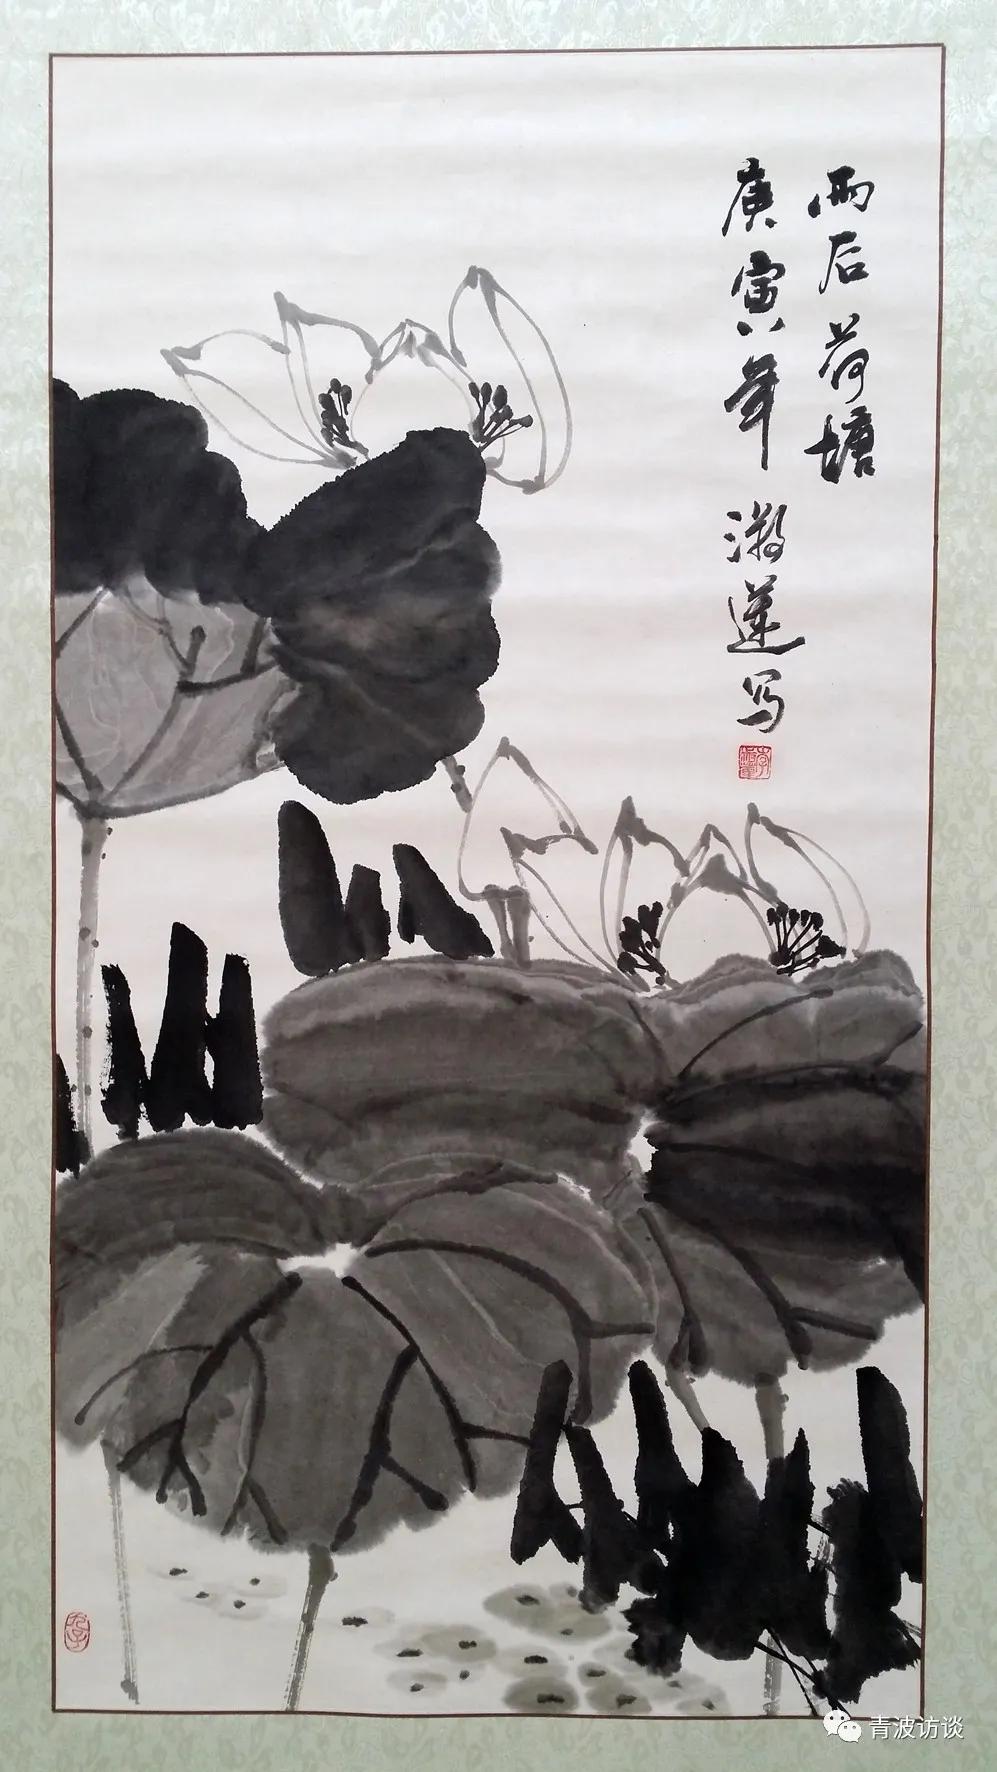 雨后荷塘
庚寅年 漪莲写
青波访谈